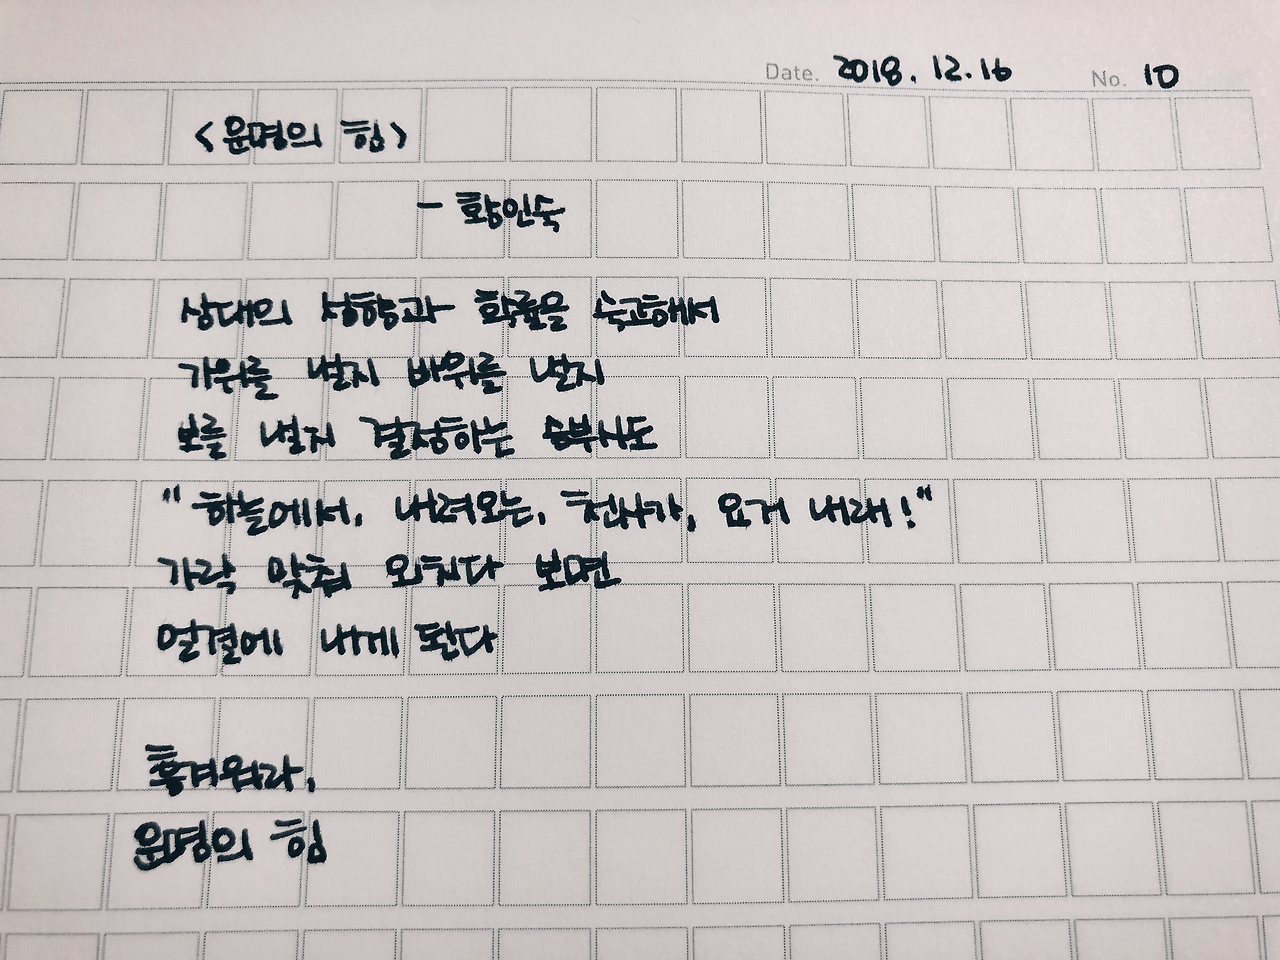 Date. 2018. 12. 16 No. 10
<운명의 힘>
- 황인숙
상대의 성향과 확률을 숙고해서
가위를 낼지 바위를 낼지
보를 낼지 결정하는 승부사도
"하늘에서, 내려오는, 천사가, 요거 내래!"
가락 맞춰 외치다 보면
얼결에 내게 된다
흥겨워라,
운명의 힘